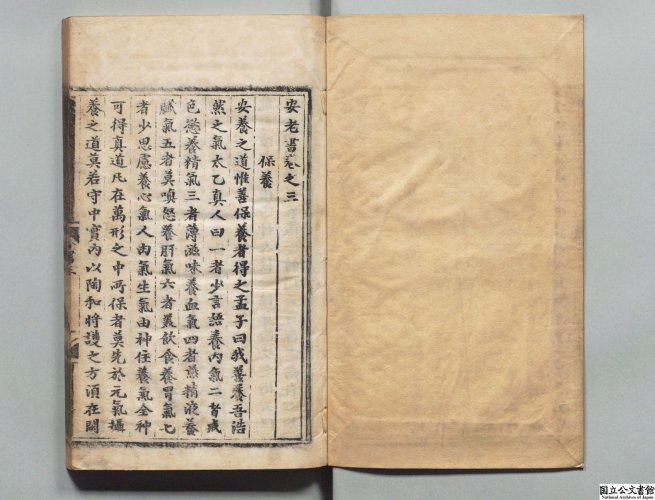 安老書卷之三
保養
安養之道惟善保養者得之孟子曰我善養吾浩
然之氣太乙真人曰一者少言語養內氣二者戒
色慾養精氣三者薄滋味養血氣四者嚥精液養
臟氣五者莫嗔怒養肝氣六者美飲食養胃氣七
者少思慮養心氣人由氣生氣由神住養氣全神
可得真道凡在萬形之中所保者莫先於元氣攝
養之道莫若守中實內以陶和將護之方須在閑
国立公文書館
National Archives of Japan